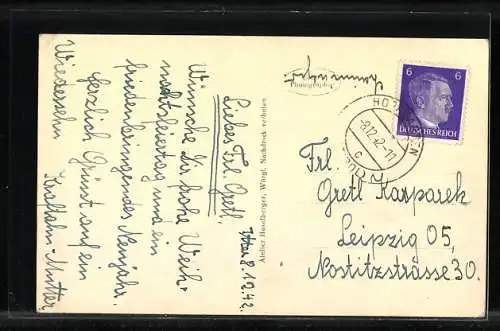 Itter 8.12.42.
Liebes Frl. Gretl.
Wünsche Dir frohe Weih-
nachtsfeiertag und ein
friedenbringendes Neujahr.
Herzlich Grüsst auf ein
Wiedersehn
Kraftahn-Mutter
Atelier Haselberger, Wörgl, Nachdruck verboten
Photographie
6 6
DEUTSCHES REICH
-8.12.42-17
c
Frl.
Gretl Karparek
Leipzig O5,
Nostitzstrasse 30.